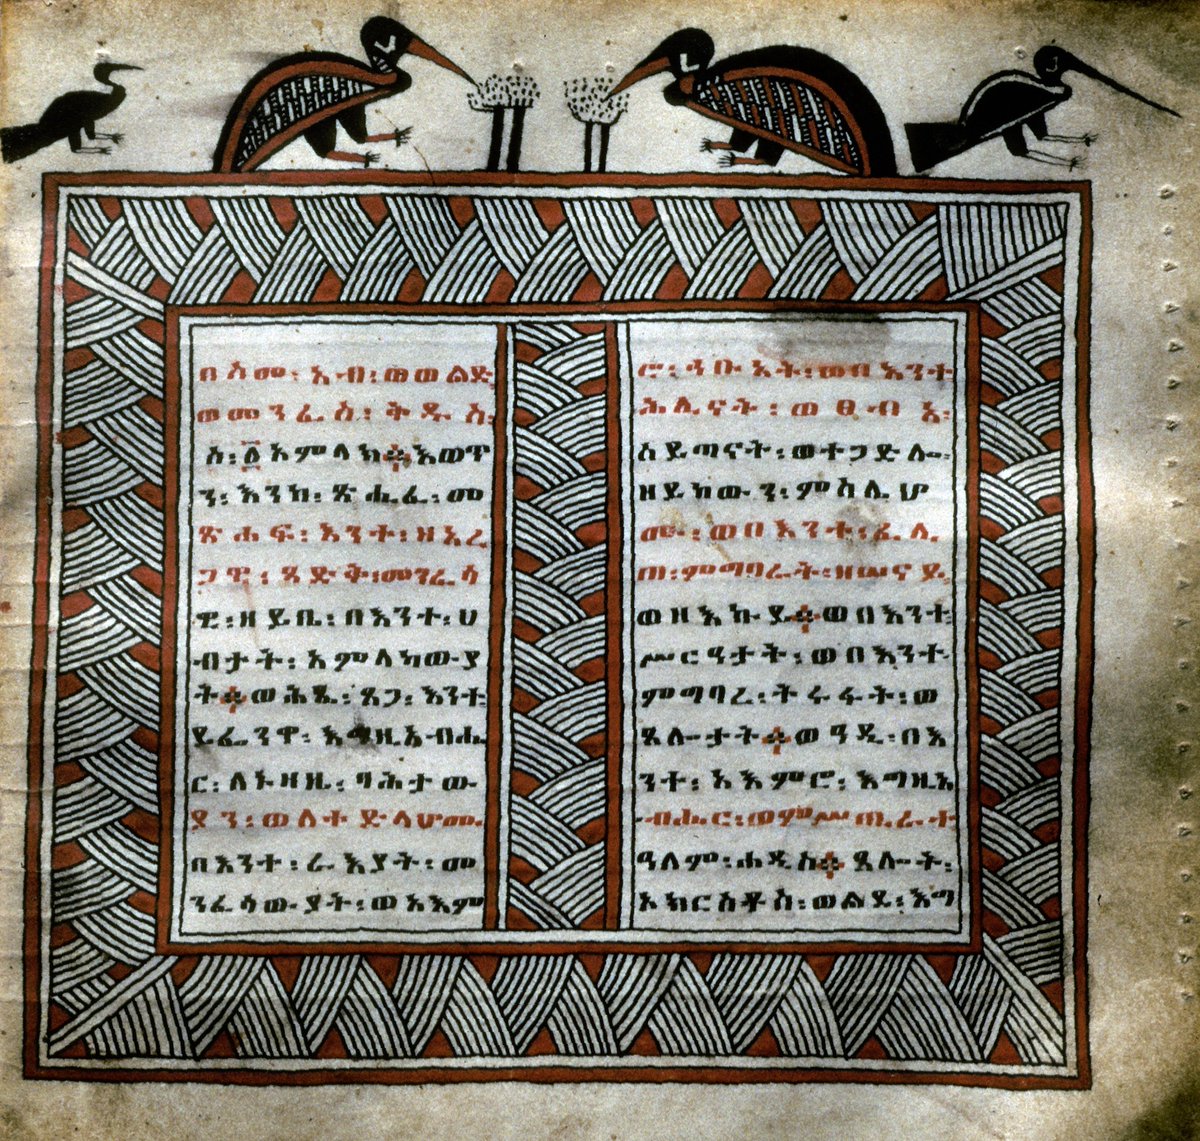 በስመ፡ አብ፡ ወወልድ፡
ወመንፈስ፡ ቅዱስ፡
ስ፡ ፩ አምላክ፨ እወጥ
ን፡ እንከ፡ ጽሒፈ፡ መ
ጽሐፍ፡ እንተ፡ ዘአረ
ጋዊ፡ ጻድት፡ መንፈሳ
ዊ፡ ዘይቤ፡ በእንተ፡ ሀ
ብታት፡ አምላካውያ
ት፨ ወሕጼ፡ ጸጋ፡ እንተ፡
ይፌንዋ፡ እግዚአብሔ
ር፡ ለኑዛዜ፡ ግሕታው
ያን፡ ወለተድላሆሙ
በእንተ፡ ራእያት፡ መ
ንፈሳውያት፡ ወአእም
ሮ፡ ኅቡአት፡ ወበእንተ
ሕሊናት፡ ወፀብአ፡
ሰይጣናት፡ ወተጋድሎ፡
ዘይከውን፡ ምስሌሆ
ሙ፡ ወበእንተ፡ ፈለ
ጠ፡ ምግባራት፡ ዘሠናይ
ወዘእኩይ፨ ወበእንተ፡
ሥርዓታት፡ ወበእንተ
ምግባረ፡ ትሩፋት፡ ወ
ጸሎታት፨ ወዓዲ፡ በእ
ንተ፡ አእምሮ፡ እግዚአ
ብሔር፡ ወምሥጢራተ
ዓለም፡ ሐዲስ፨ ጸሎት፡
ኦክርስቶስ፡ ወልደ፡ እግ